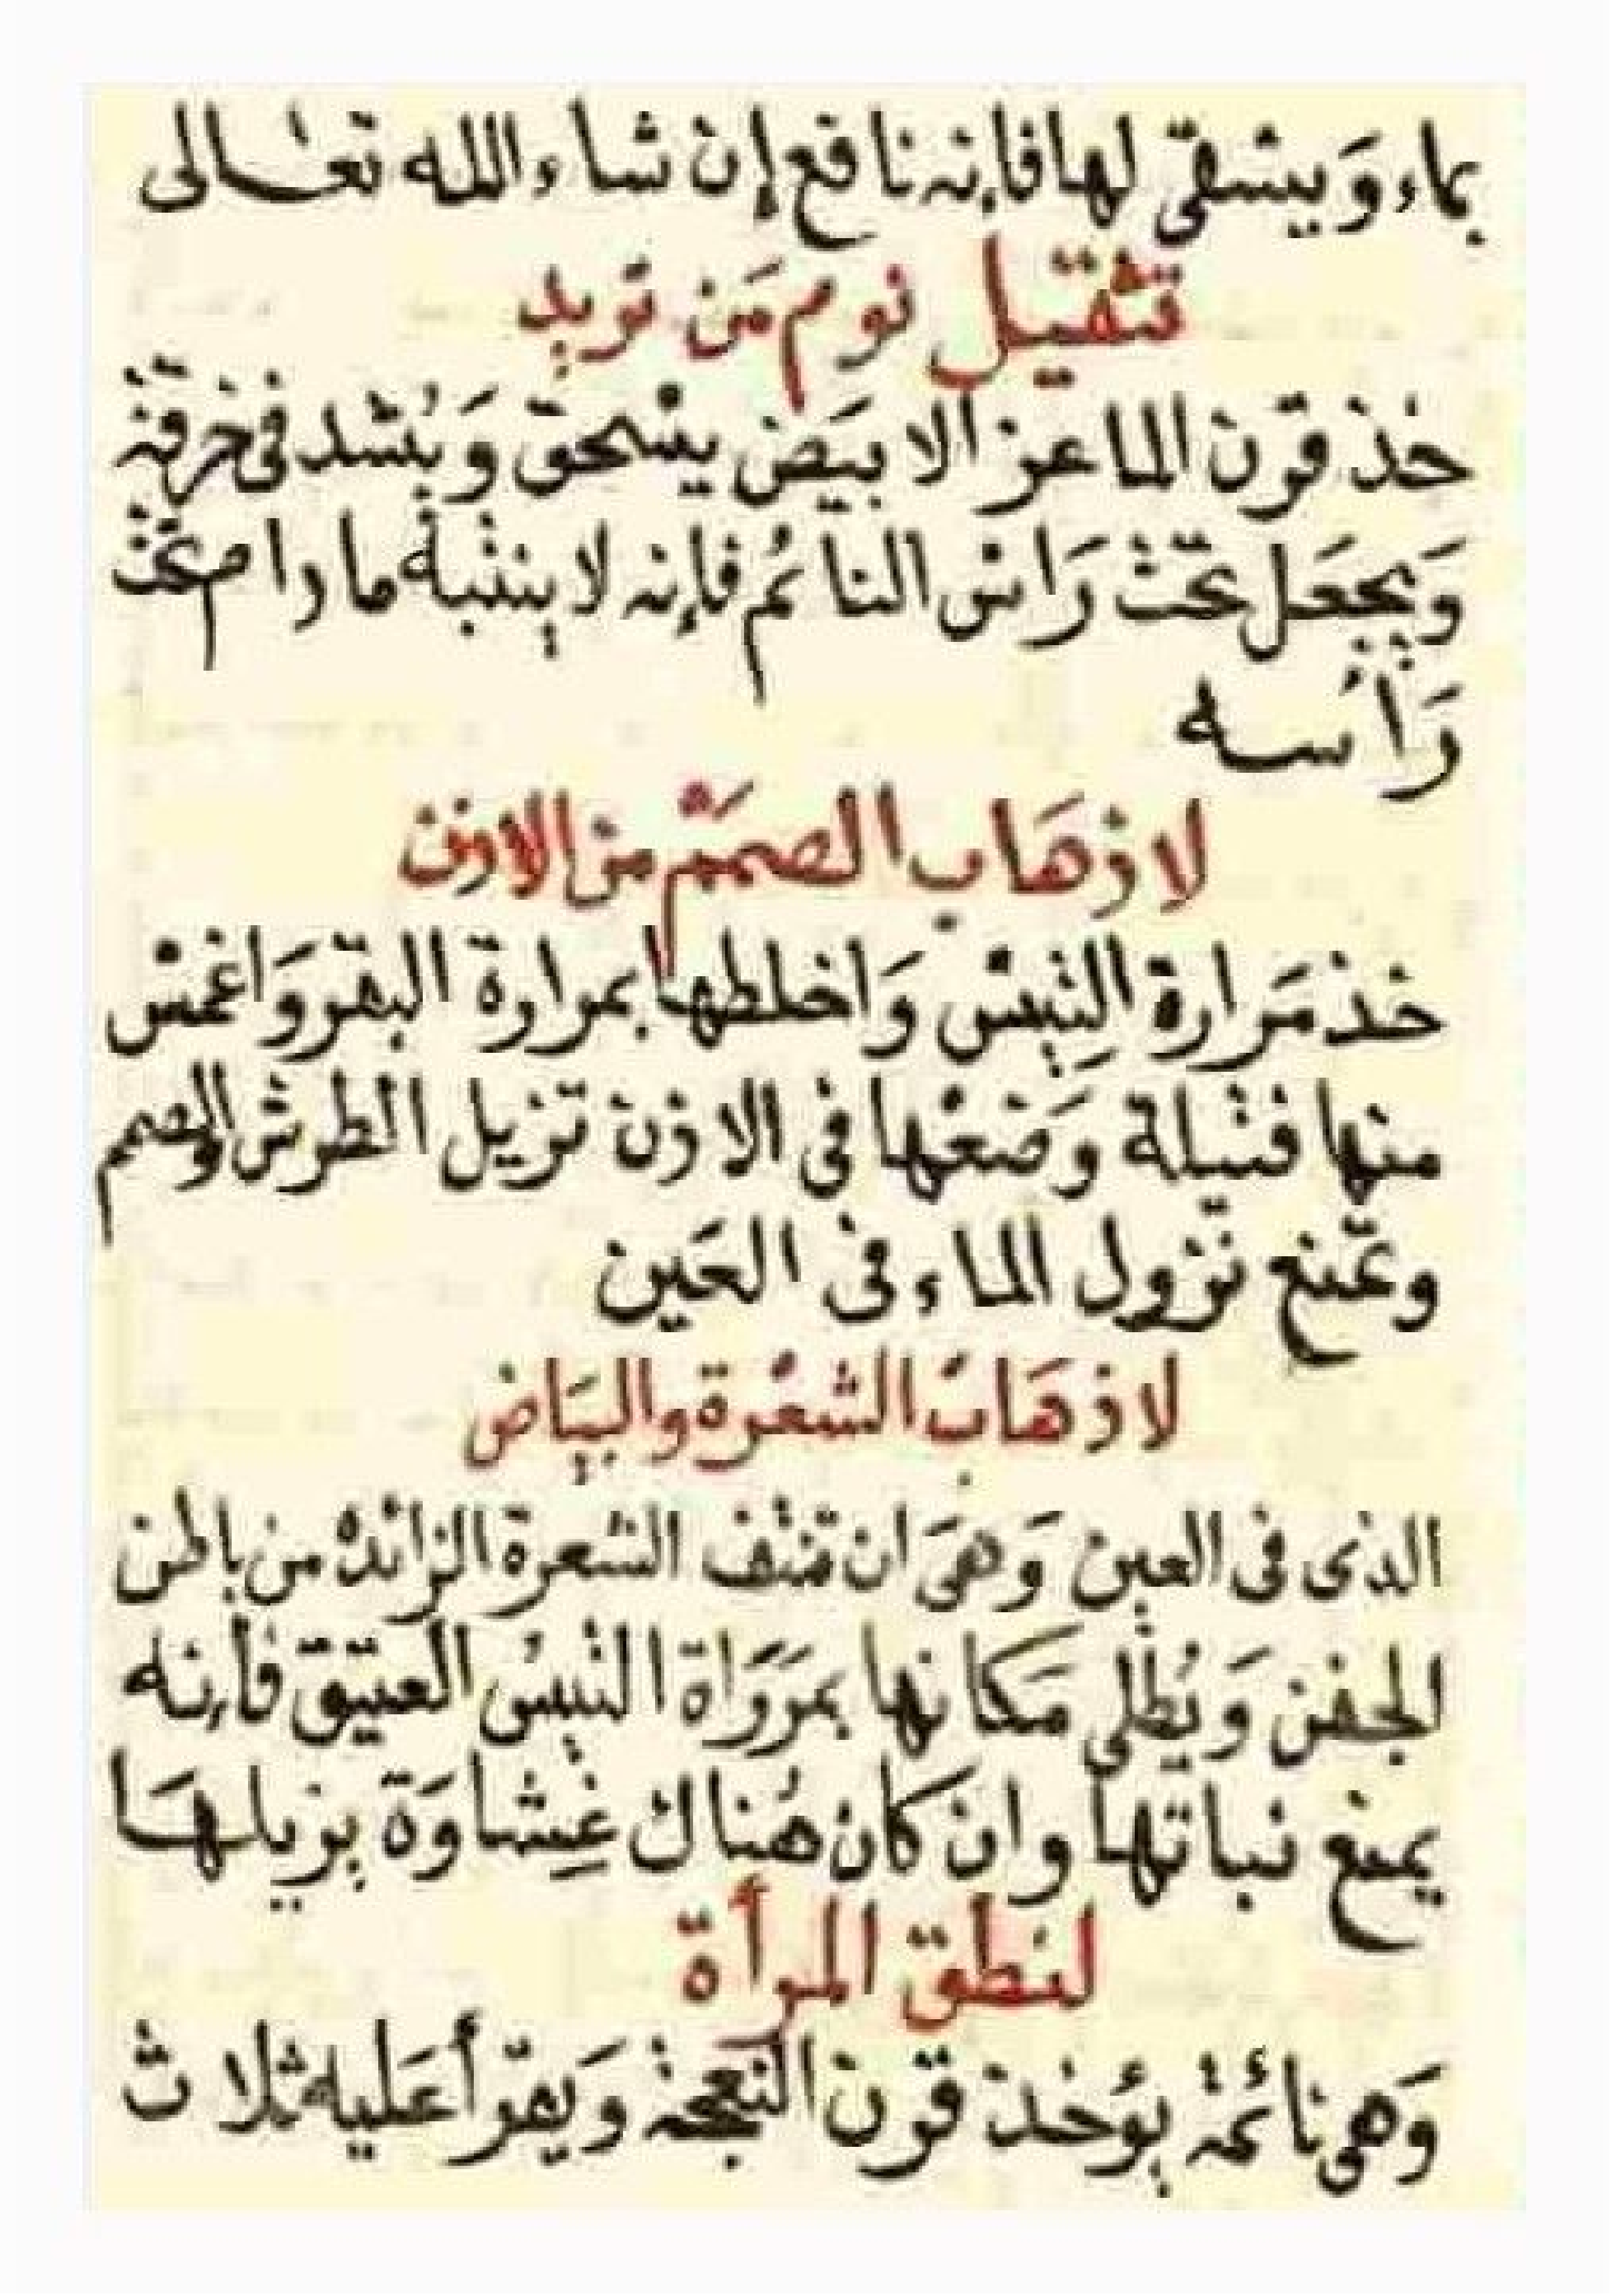 بماء وَيسْقى لها فإنه نافع إن شاء الله تعالى
تثقيل نوم مَن تريد
خذ قرن الماعز الابيَض يسْحق وَيُشد فى خرقة
وَيجعَل تحْت رَاسْ النائم فإنه لا ينتبهْ ما دام تحْت
رَأسه
لاذهَاب الصمَمْ من الاذن
خذ مَرارة التيِسْ وَاخلطها بمرارة البقر وَاغمسْ
منها فتيلة وَضعْها فى الاذن تزيل الطرشْ والصمم
وتمْنع نزول الماء فى العَين
لاذهَابْ الشعْرة والبيَاض
الذى فى العين وَهىَ ان تنتف الشعرة الزائدْ من باطن
الجفن وَيُطلى مَكانها بمَرَوَاة التيسْ العتيق فأنه
يمنع نباتها وان كان هُناك غِشاوَة يزيلهَا
لنطق المرأة
وَهى نائمة يؤخذ قرن النعجة وَيقرأ عَليه ثلاث